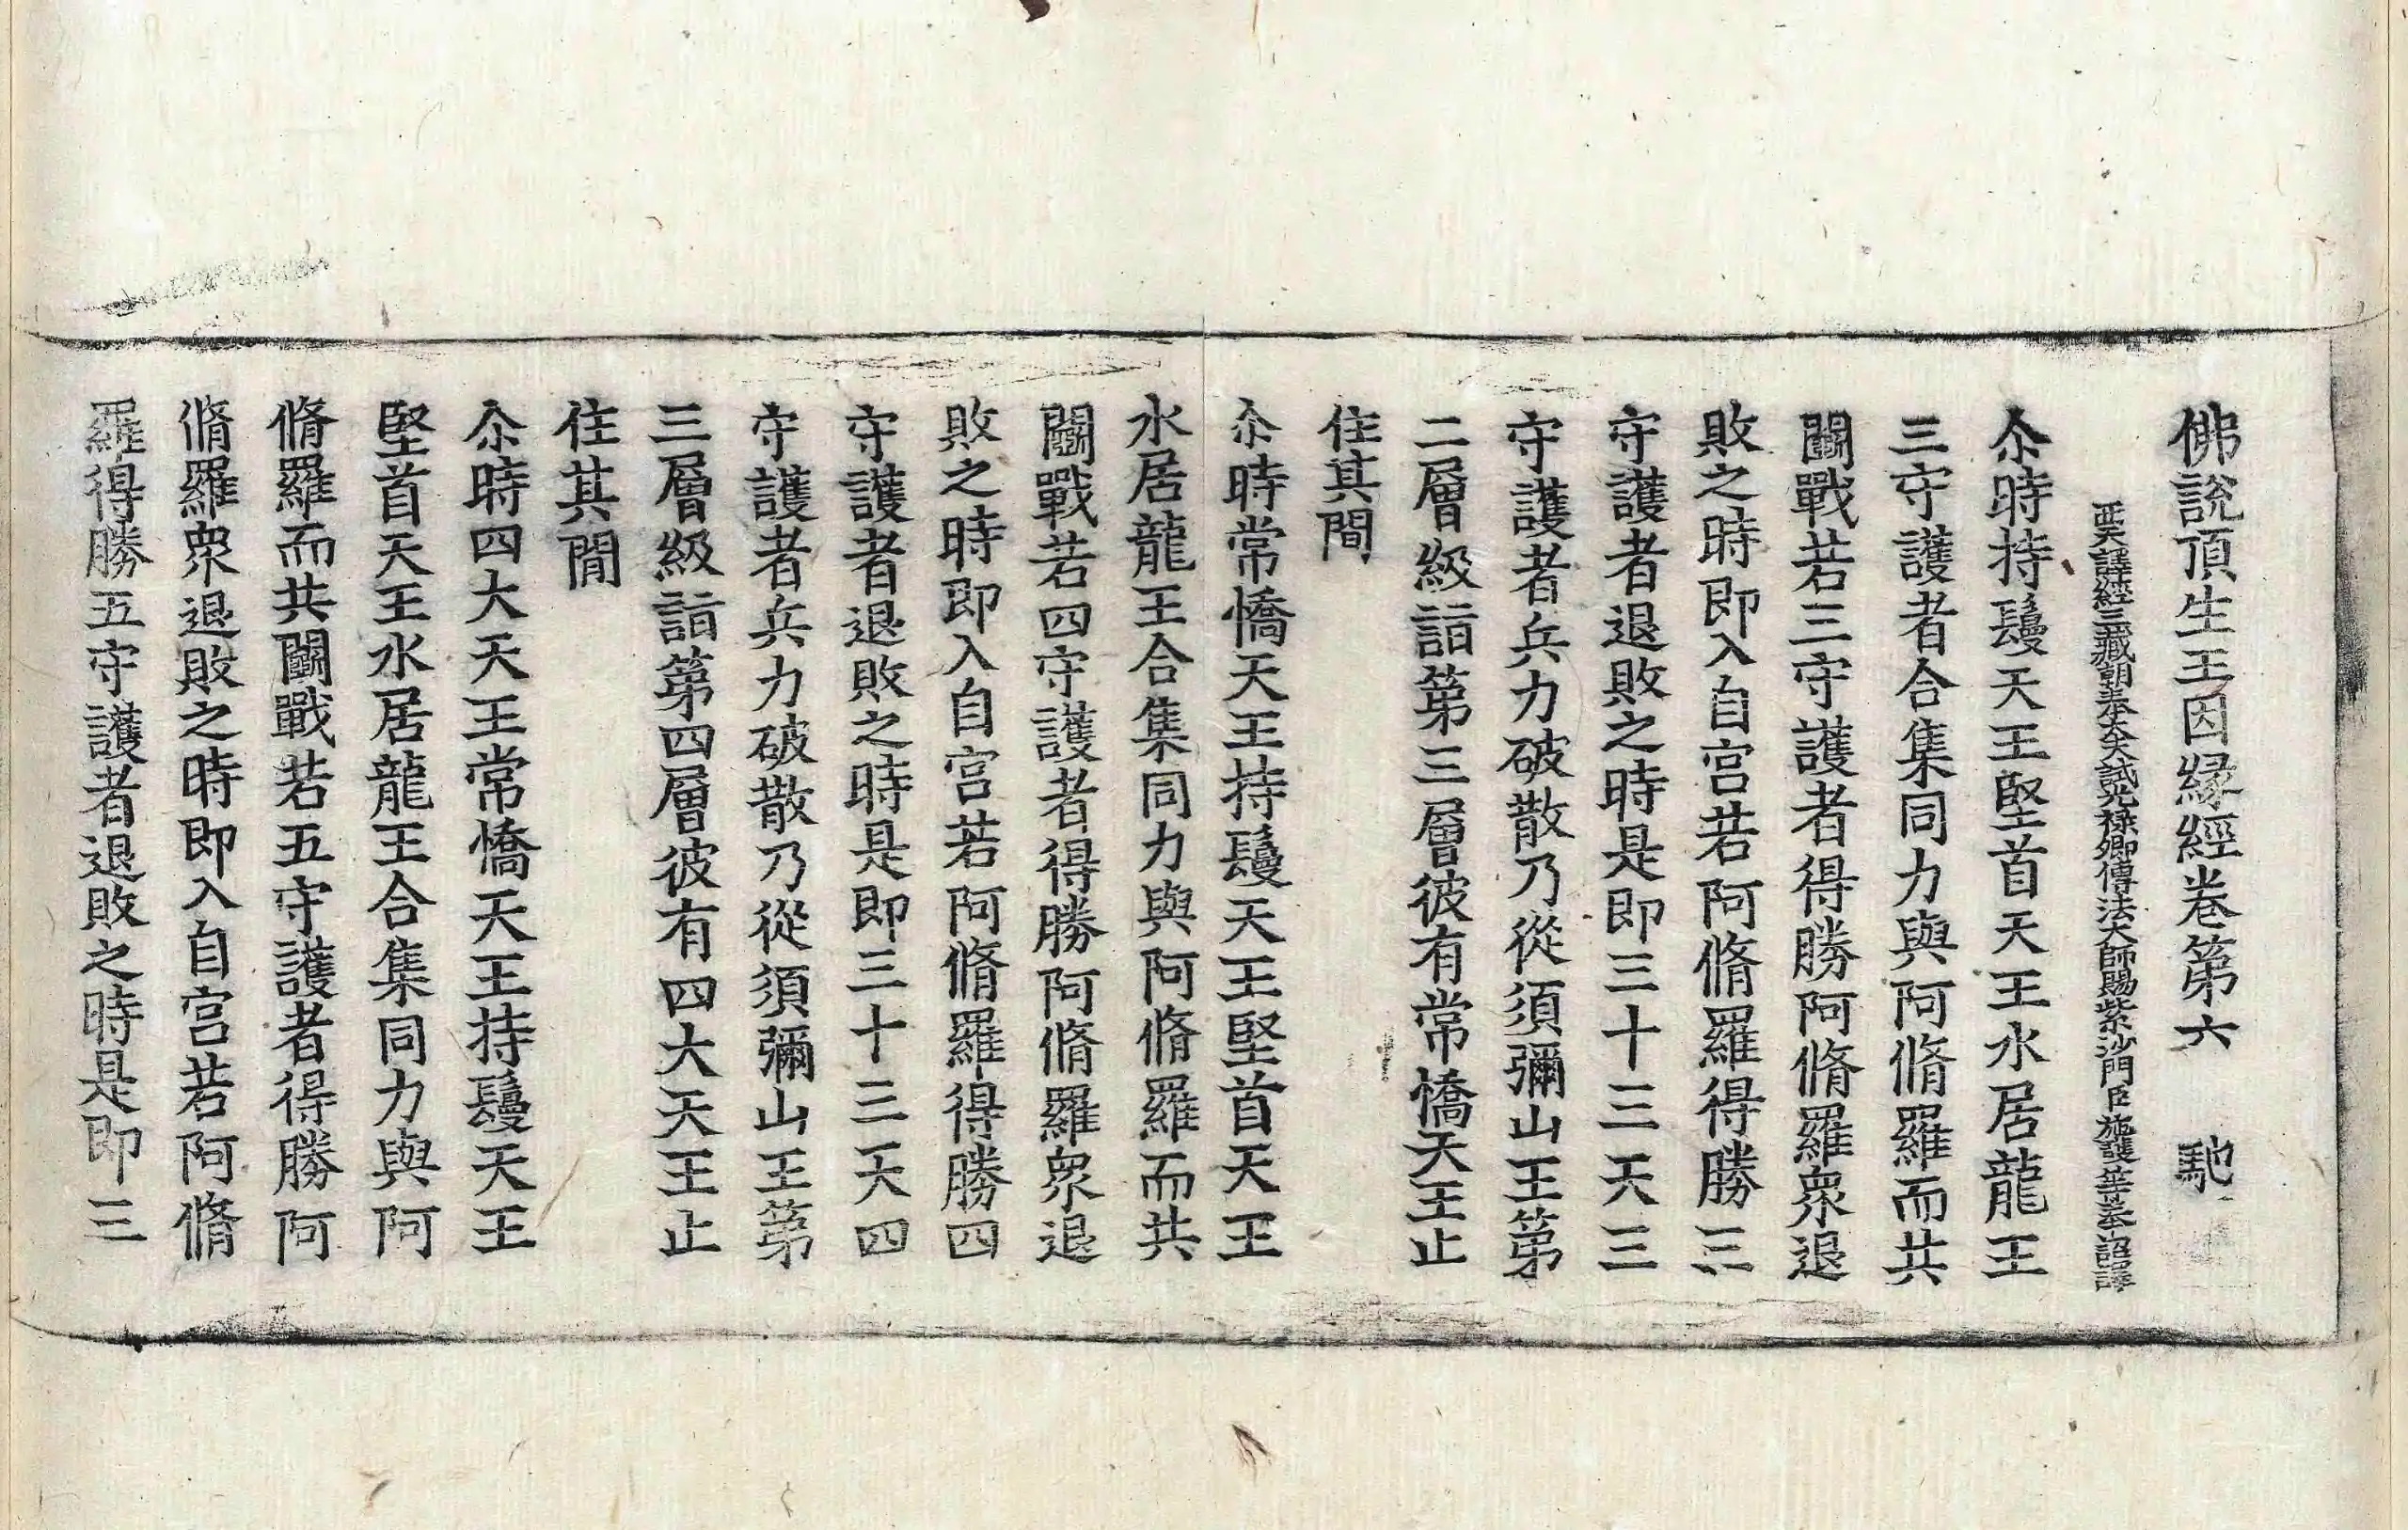 佛說頂生王因縁經卷第六　馳
西天譯經三藏朝奉大夫試光祿卿傳法大師賜紫沙門臣施護等奉詔譯
尒時持鬘天王堅首天王水居龍王
三守護者合集同力與阿脩羅而共
鬬戰若三守護者得勝阿脩羅衆退
敗之時即入自宮若阿脩羅得勝三
守護者退敗之時是即三十三天三
守護者兵力破散乃從須彌山王第
二層級詣第三層彼有常憍天王止
住其間
尒時常憍天王持鬘天王堅首天王
水居龍王合集同力與阿脩羅而共
鬬戰若四守護者得勝阿脩羅衆退
敗之時即入自宮若阿脩羅得勝四
守護者退敗之時是即三十三天四
守護者兵力破散乃從須彌山王第
三層級詣第四層彼有四大天王止
住其閒
尒時四大天王常憍天王持鬘天王
堅首天王水居龍王合集同力與阿
脩羅而共鬬戰若五守護者得勝阿
脩羅衆退敗之時即入自宮若阿脩
羅得勝五守護者退敗之時是即三